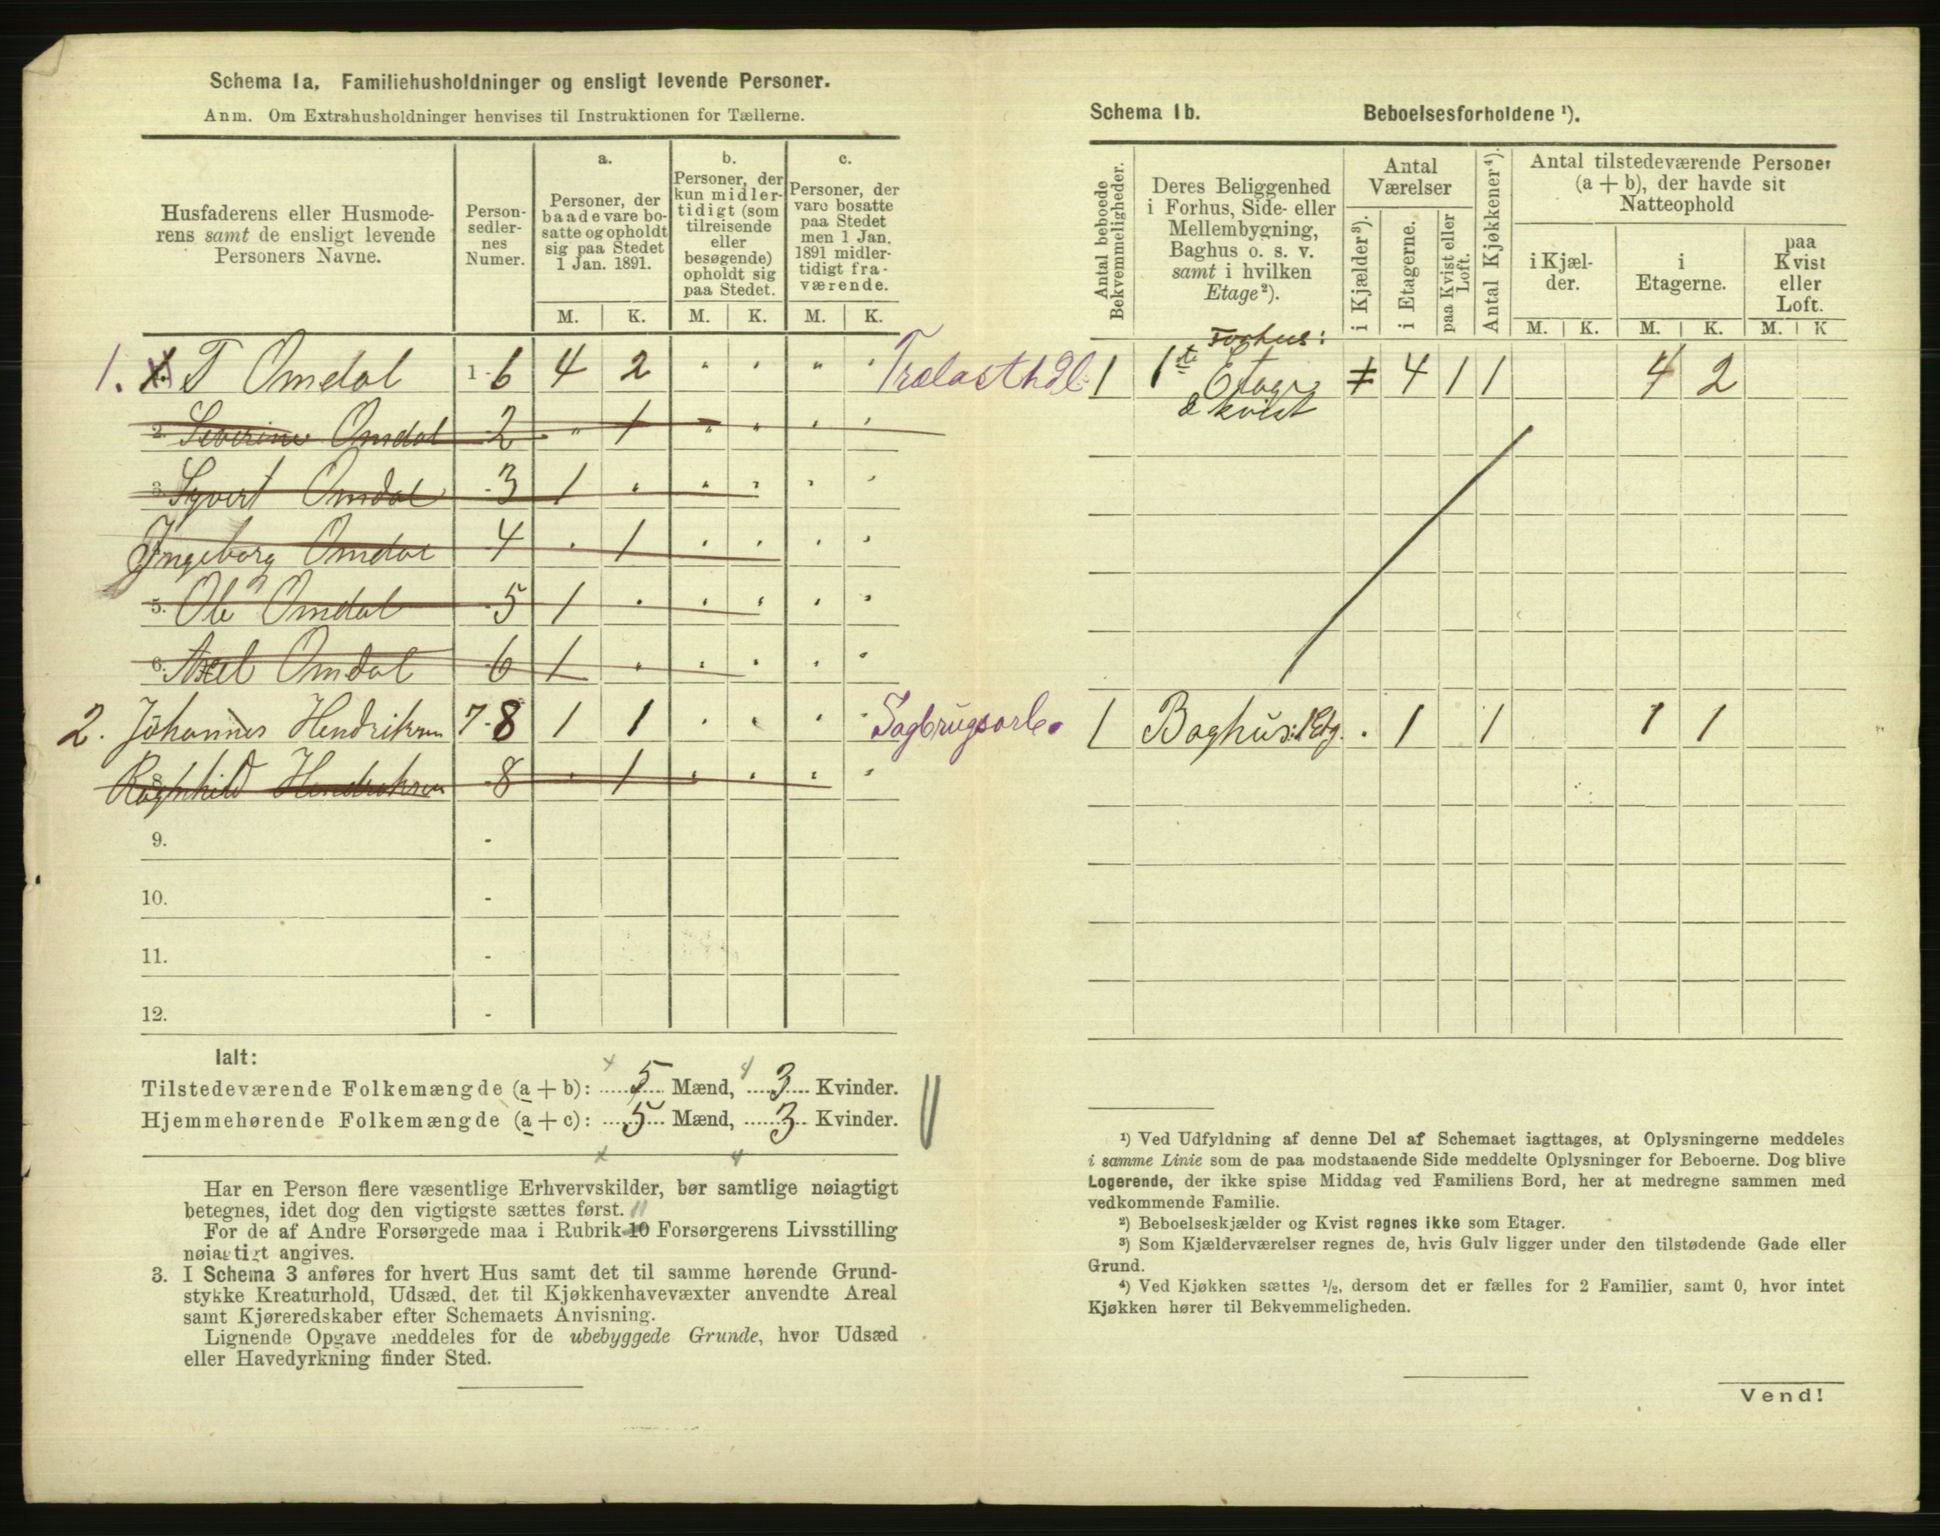 Schema 1a. Familiehusholdninger og ensligt levende Personer.
Anm. Om Extrahusholdninger henvises til Instruktionen for Tællerne.
Husfaderens eller Husmode-
rens samt de ensligt levende
Personers Navne.
Person-
sedler-
nes
Numer.
a.
Personer, der
baade vare bo-
satte og opholdt
sig paa Stedet
1 Jan. 1891.
b.
Personer, der
kun midler-
tidigt (som
tilreisende
eller
besøgende)
opholdt sig
paa Stedet.
c.
Personer, der
vare bosatte
paa Stedet
men 1 Jan.
1891 midler-
tidigt fra-
værende.
M. K. M. K. M. K.
1. T Omdal 1-6 4 2 " " " " Trælasthdl.
2. Severine Omdal - 2 " 1 " " " "
3. Syvert Omdal - 3 1 " " " " "
Ingeborg Omdal - 4 " 1 " " " "
5. Ole Omdal - 5 1 " " " " "
6. Axel Omdal - 6 1 " " " " "
2. Johannes Hendriksen 7-8 1 1 " " " " Sagbrugsarb.
8. Ragnhild Hendriksen - 8 " 1 " " " "
9. -
10. -
11. -
12. -
Ialt:
Tilstedeværende Folkemængde (a + b): 5 Mænd, 3 Kvinder.
Hjemmehørende Folkemængde (a + c): 5 Mænd, 3 Kvinder.
Har en Person flere væsentlige Erhvervskilder, bør samtlige nøiagtigt
betegnes, idet dog den vigtigste sættes først. 11
For de af Andre Forsørgede maa i Rubrik 10 Forsørgerens Livsstilling
nøiagtigt angives.
3. I Schema 3 anføres for hvert Hus samt det til samme hørende Grund-
stykke Kreaturhold, Udsæd, det til Kjøkkenhavevæxter anvendte Areal
samt Kjøreredskaber efter Schemaets Anvisning.
Lignende Opgave meddeles for de ubebyggede Grunde, hvor Udsæd
eller Havedyrkning finder Sted.
Schema 1b. Beboelsesforholdene ¹).
Antal beboede
Bekvemmeligheder.
Deres Beliggenhed
i Forhus, Side- eller
Mellembygning,
Baghus o. s. v.
samt i hvilken
Etage²).
Antal
Værelser
i Kjælder³).
i Etagerne.
paa Kvist eller
Loft.
Antal Kjøkkener⁴).
Antal tilstedeværende Personer
(a + b), der havde sit
Natteophold
i Kjæl-
der.
i
Etagerne.
paa
Kvist
eller
Loft.
M. K. M. K. M. K
Forhus:
1 1ste Etage 4 1 1 4 2
& kvist
1 Baghus: 1 Etg. . 1 1 1 1
¹) Ved Udfyldning af denne Del af Schemaet iagttages, at Oplysningerne meddeles
i samme Linie som de paa modstaaende Side meddelte Oplysninger for Beboerne. Dog blive
Logerende, der ikke spise Middag ved Familiens Bord, her at medregne sammen med
vedkommende Familie.
²) Beboelseskjælder og Kvist regnes ikke som Etager.
³) Som Kjælderværelser regnes de, hvis Gulv ligger under den tilstødende Gade eller
Grund.
⁴) Ved Kjøkken sættes ½, dersom det er fælles for 2 Familier, samt 0, hvor intet
Kjøkken hører til Bekvemmeligheden.
Vend!